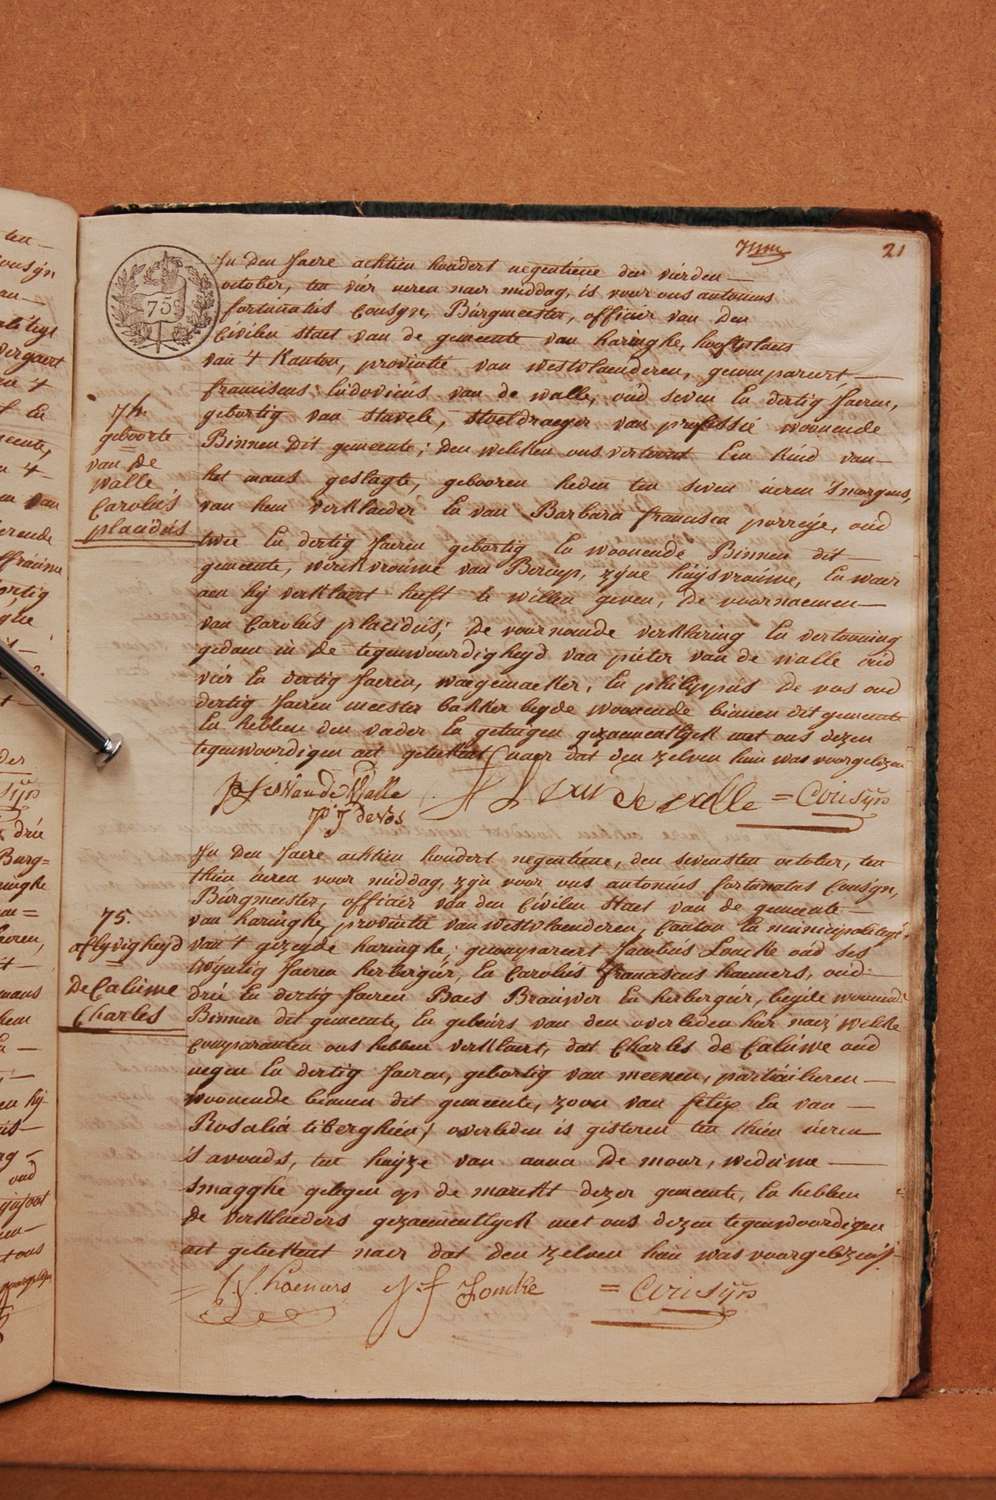 21
75
In den Jaere achtien hondert negentiene den vierden
october, ten vier ueren naer middag, is voor ons antonius
fortunatus Cousyn, Burgmeester, officier van den
Civilen staet van de gemeente van haringhe, hooftplaets
van 't Kanton, provintie van westvlaenderen, gecompareert
franciscus ludovicus van de walle, oud seven en dertig Jaeren,
gebortig van stavele, stoeldraeger van professie woonende
Binnen dit gemeente; den welken ons vertoont een kind van
het mans geslagte, gebooren heden ten seven ueren 's morgens,
van hem verklaeder en van Barbara francisca porreye, oud
twee en dertig Jaeren gebortig en woonende Binnen dit
gemeente, werkvrouwe van Beroep, zyne huysvrouwe, en waer
aen hy verklaert heeft te willen geven, de voornaemen
van Carolus placidus; de voornoemde verklaring en vertooning
gedaen in de tegenwoordigheyd van pieter van de walle oud
vier en dertig Jaeren, waegemaeker, en philippus de vos oud
dertig Jaeren meester bakker beyde woonende binnen dit gemeente
en hebben den vader en getuigen gezaementlyk met ons dezen
tegenwoordigen act geteekent naer dat den zelven hun was voorgelezen
74.
geboorte
van de
walle
Carolus
placidus
Van de Walle
de vos
de walle = Cousyn
In den Jaere achtien hondert negentiene, den sevensten october, ten
thien ueren voor middag, zyn voor ons antonius fortunatus Cousyn,
Burgmeester, officier van den Civilen Staet van de gemeente
van haringhe, provintie van westvlaenderen, Canton en municipaliteyt
van 't gezeyde haringhe; gecompareert Jacobus Loncke oud ses
twyntig Jaeren herbergier, en Carolus franciscus haemers, oud
drie en dertig Jaeren Baes Brauwer en herbergier, beyde woonende
Binnen dit gemeente, en gebeurs van den overleden hier naer, welke
comparanten ons hebben verklaert, dat Charles de Caluwe oud
negen en dertig Jaeren, gebortig van meenen, particulieren
woonende binnen dit gemeente, zoon van felix en van
Rosalia tiberghien; overleden is gisteren ten thien ueren
's avonds, ten huyze van anna de mour, weduwe
smagghe gelegen op de marekt dezer gemeente, en hebben
de verklaeders gezaementlyk met ons dezen tegenwoordigen
act geteekent naer dat den zelven hun was voorgelezen
75.
aflyvigheyd
De Caluwe
Charles
haemers Loncke = Cousyn